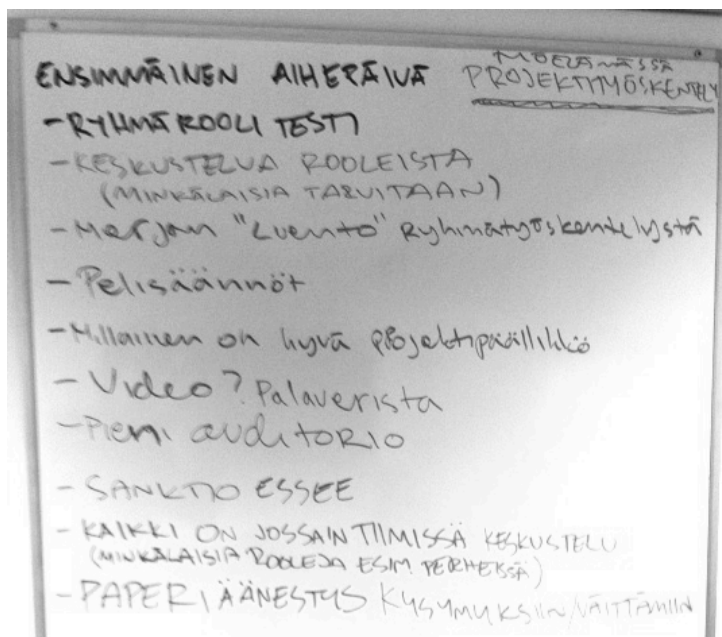 ENSIMMÄINEN AIHEPÄIVÄ
TYÖELÄMÄSSÄ
PROJEKTITYÖSKENTELY
- RYHMÄROOLI TESTI
- KESKUSTELUA ROOLEISTA
(MINKÄLAISIA TARVITAAN)
- Merjan "Luento" Ryhmätyöskentelystä
- Pelisäännöt
- Millainen on hyvä projektipäällikkö
- Video? Palaverista
- Pieni auditorio
- SANKTIO ESSEE
- KAIKKI ON JOSSAIN TIIMISSÄ KESKUSTELU
(MINKÄLAISIA ROOLEJA ESIM. PERHEISSÄ)
- PAPERIÄÄNESTYS KYSYMYKSIIN/VÄITTÄMIIN